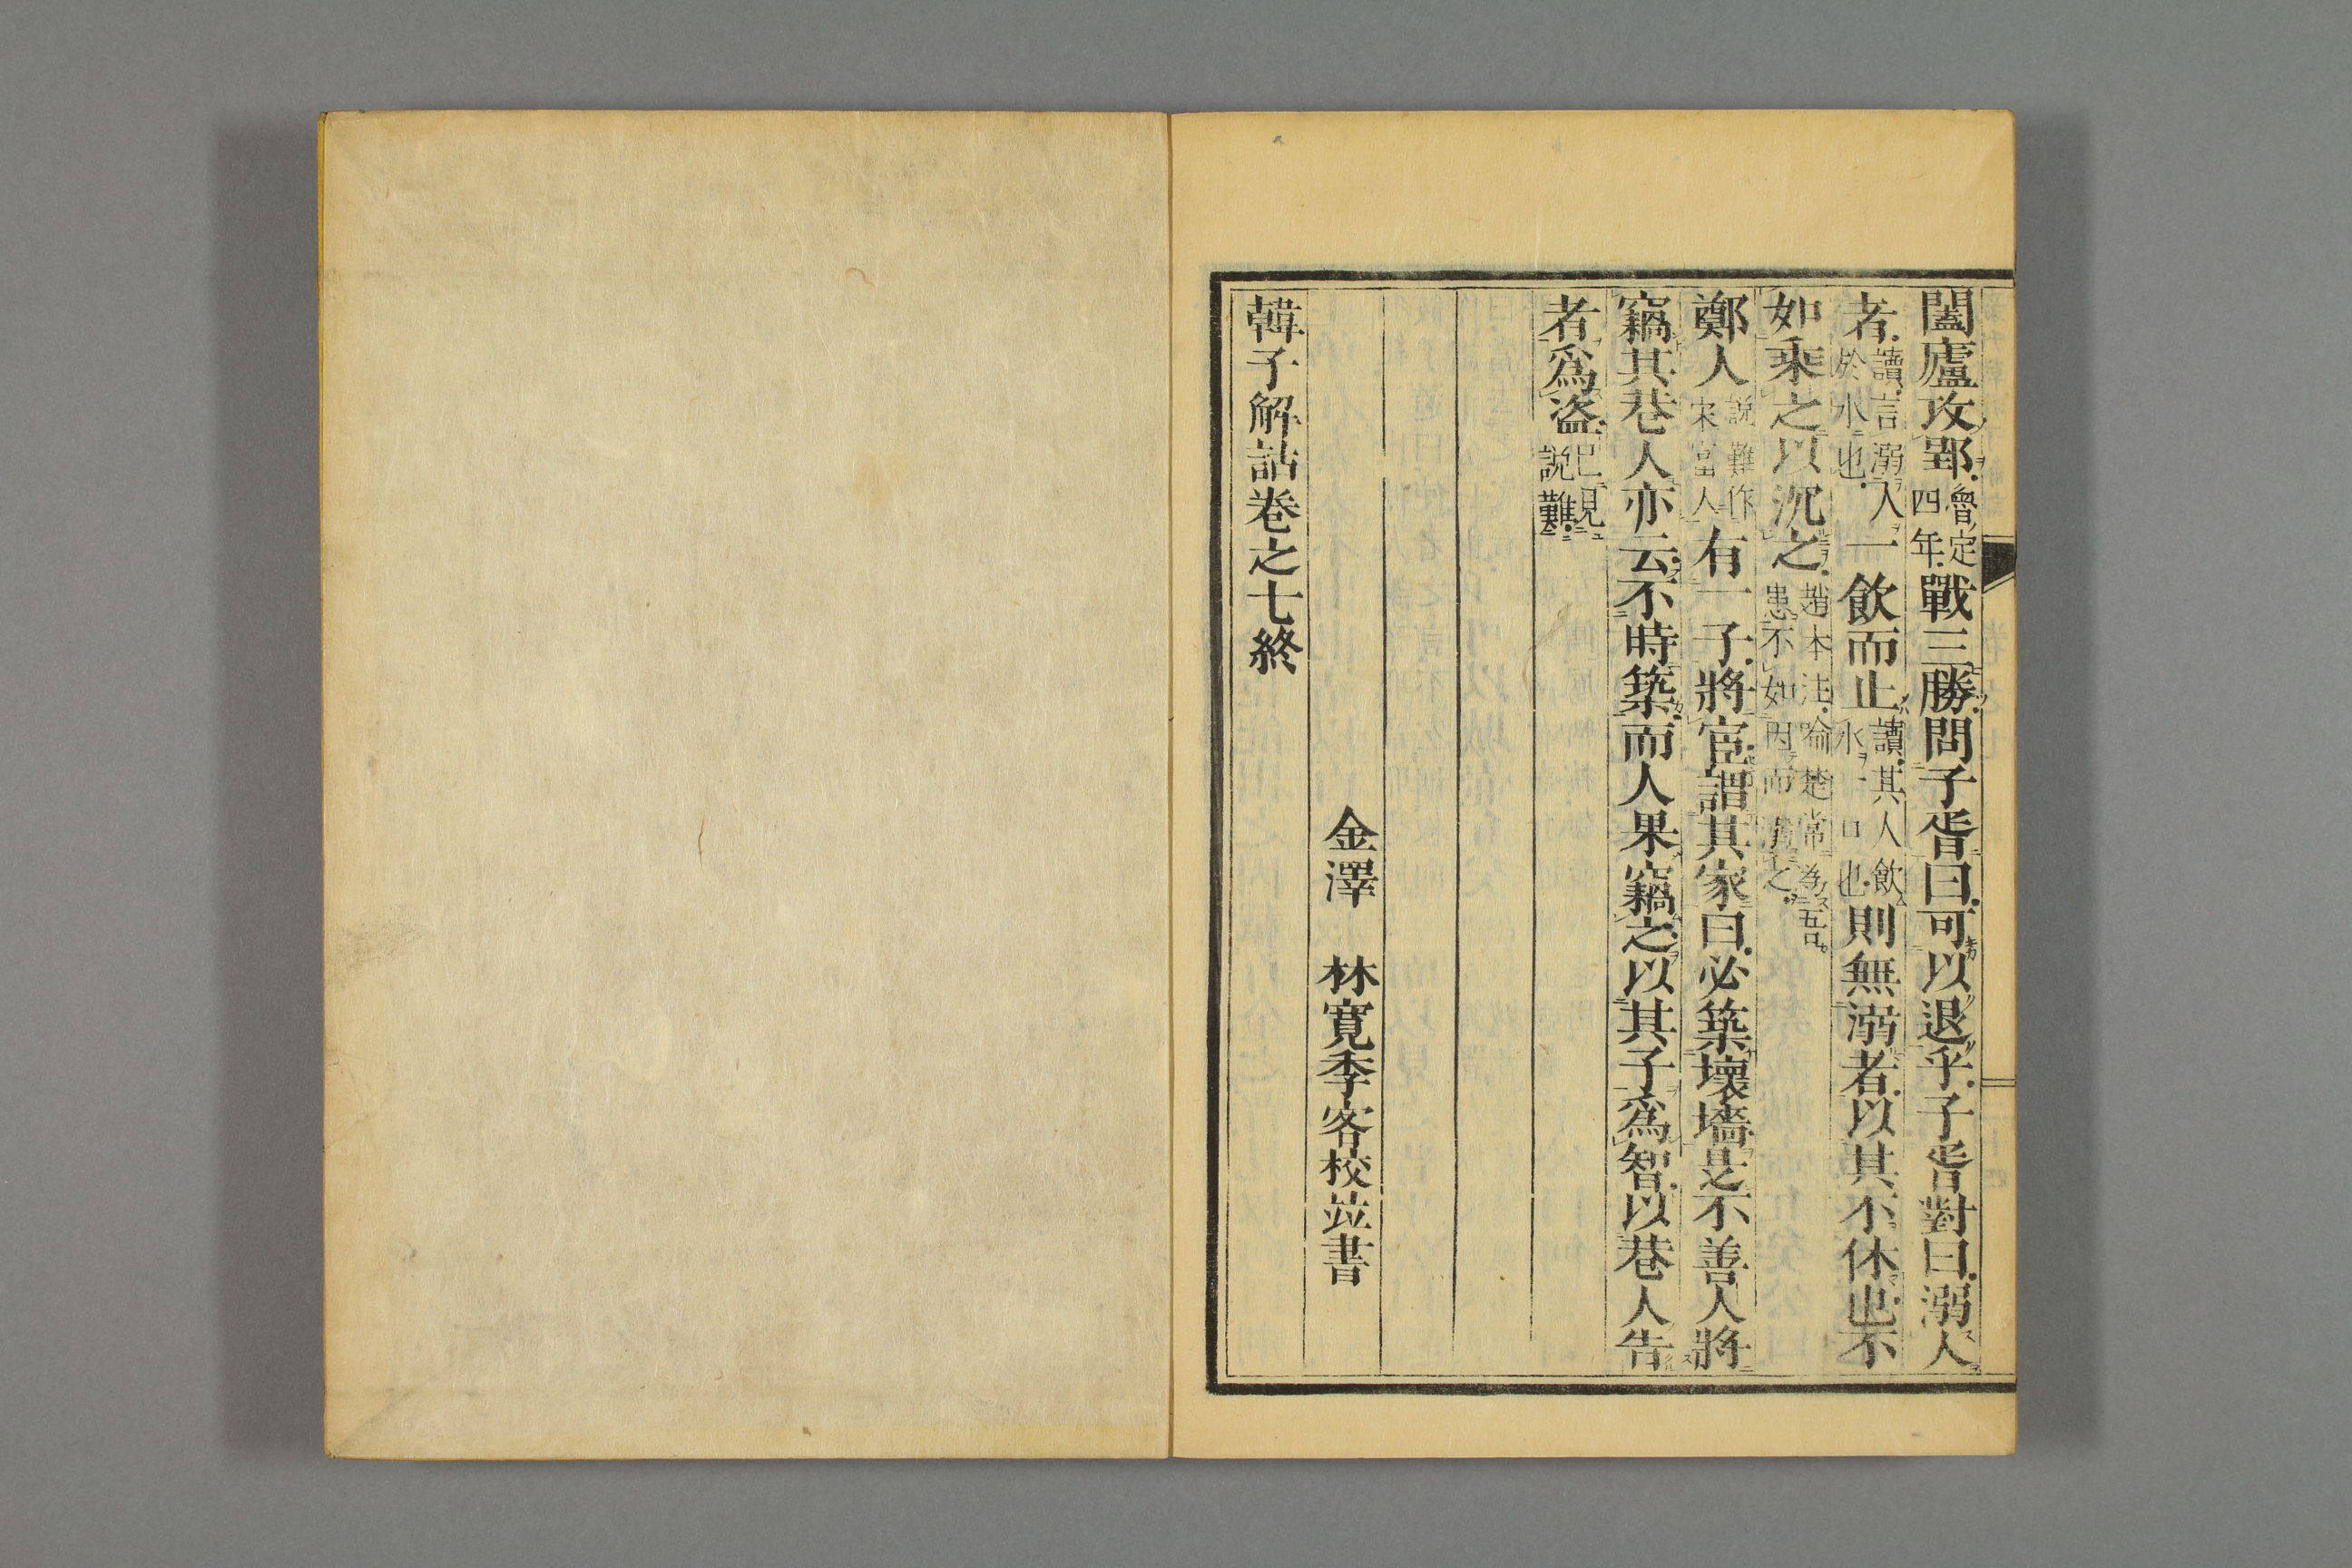 闔廬攻郢魯定四年戰三勝問子胥曰可以退乎子胥對曰溺人
者讀言溺人於水也一飮而止讀其人飮水一口也則無溺者以其不休也不
如乘之以沉之趙本注喻楚常爲吾患不如因而溺之
鄭人說難作宋富人有一子將宦謂其家曰必築壞墻是不善人將
竊其巷人亦云不時築而人果竊之以其子爲智以巷人告
者爲盜已見說難
金澤 林寬季客校竝書
韓子解詁卷之七終